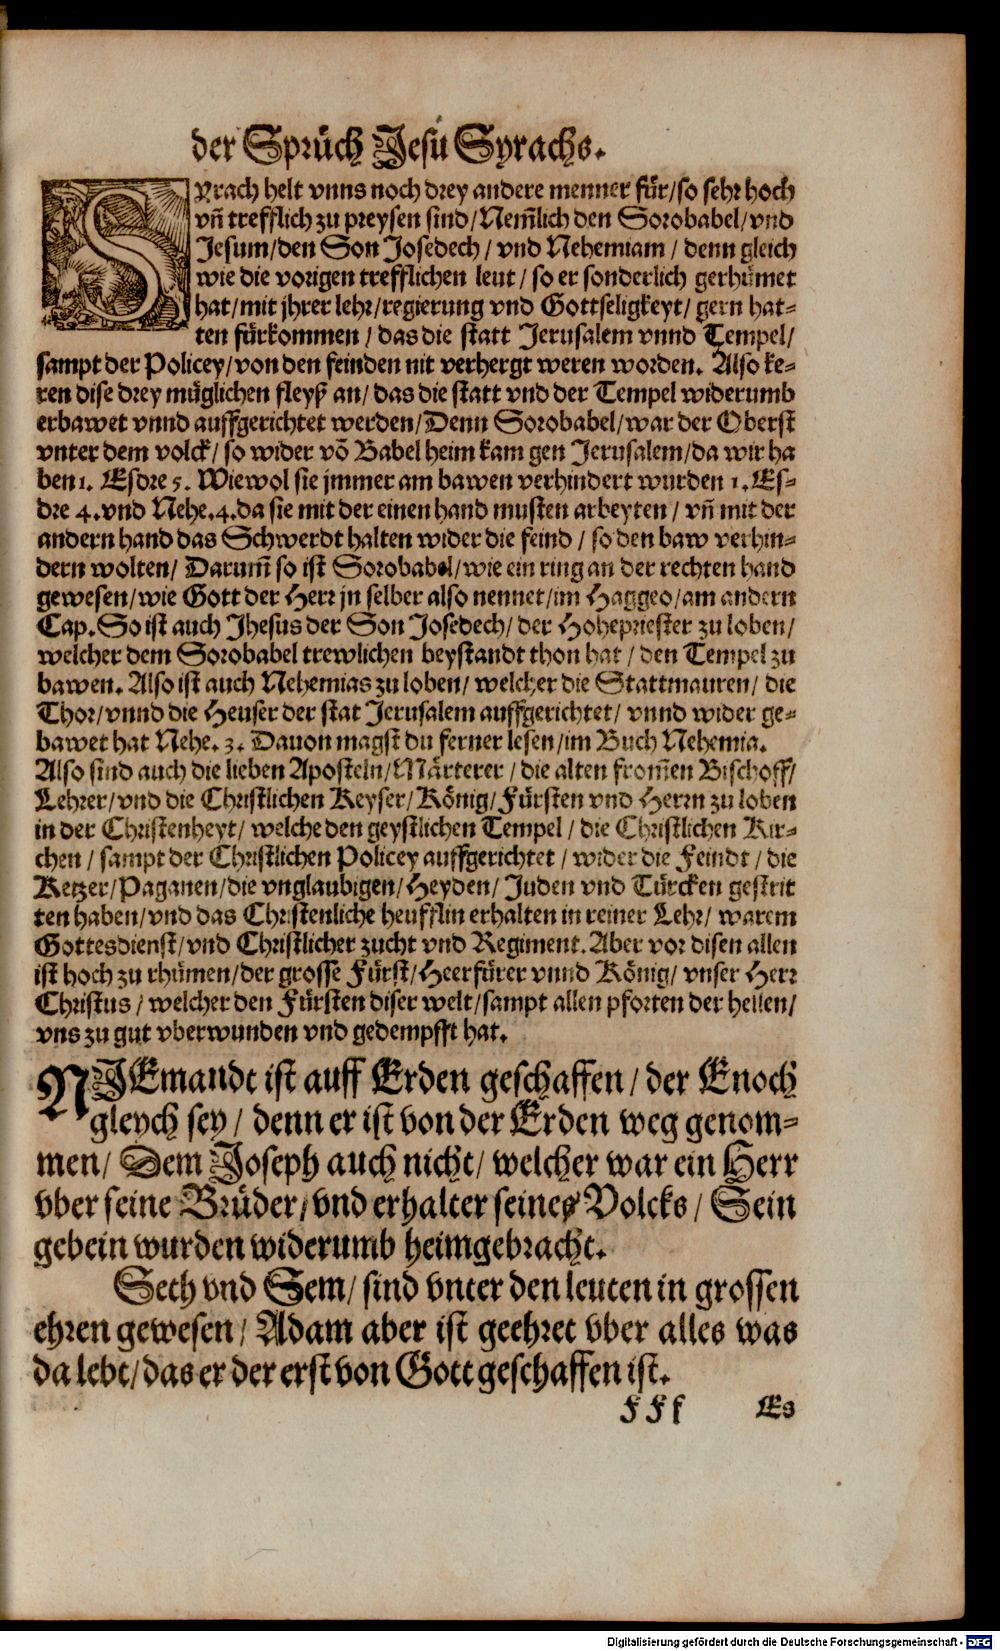 der Sprüch Jesu Syrachs.
SYrach helt vnns noch drey andere menner für/so sehr hoch
vñ trefflich zu preysen sind/Nem̃lich den Sorobabel/vnd
Jesum/den Son Josedech/vnd Nehemiam/denn gleich
wie die vorigen trefflichen leut/so er sonderlich gerhümet
hat/mit jhrer lehr/regierung vnd Gottseligkeyt/gern hat=
ten fürkommen/das die statt Jerusalem vnnd Tempel/
sampt der Policey/von den feinden nit verhergt weren worden. Also ke=
ren dise drey müglichen fleyß an/das die statt vnd der Tempel widerumb
erbawet vnnd auffgerichtet werden/Denn Sorobabel/war der Oberst
vnter dem volck/so wider võ Babel heim kam gen Jerusalem/da wir ha
ben 1. Esdre 5. Wiewol sie jmmer am bawen verhindert wurden 1. Es=
dre 4. vnd Nehe. 4. da sie mit der einen hand musten arbeyten/vñ mit der
andern hand das Schwerdt halten wider die feind/so den baw verhin=
dern wolten/Darum̃ so ist Sorobabel/wie ein ring an der rechten hand
gewesen/wie Gott der Herr jn selber also nennet/im Haggeo/am andern
Cap. So ist auch Jhesus der Son Josedech/der Hohepriester zu loben/
welcher dem Sorobabel trewlichen beystandt thon hat/den Tempel zu
bawen. Also ist auch Nehemias zu loben/welcher die Stattmauren/die
Thor/vnnd die Heuser der stat Jerusalem auffgerichtet/vnnd wider ge=
bawet hat Nehe. 3. Dauon magst du ferner lesen/im Buch Nehemia.
Also sind auch die lieben Aposteln/Märterer/die alten from̃en Bischoff/
Lehrer/vnd die Christlichen Keyser/König/Fürsten vnd Herrn zu loben
in der Christenheyt/welche den geystlichen Tempel/die Christlichen Kir=
chen/sampt der Christlichen Policey auffgerichtet/wider die Feindt/die
Ketzer/Paganen/die vnglaubigen/Heyden/Juden vnd Türcken gestrit
ten haben/vnd das Christenliche heufflin erhalten in reiner Lehr/warem
Gottesdienst/vnd Christlicher zucht vnd Regiment. Aber vor disen allen
ist hoch zu rhümen/der grosse Fürst/Heerfürer vnnd König/vnser Herr
Christus/welcher den Fürsten diser welt/sampt allen pforten der hellen/
vns zu gut vberwunden vnd gedempfft hat.
NJEmandt ist auff Erden geschaffen/der Enoch
gleych sey/denn er ist von der Erden weg genom=
men/Dem Joseph auch nicht/welcher war ein Herr
vber seine Brüder/vnd erhalter seines Volcks/Sein
gebein wurden widerumb heimgebracht.
Seth vnd Sem/sind vnter den leuten in grossen
ehren gewesen/Adam aber ist geehret vber alles was
da lebt/das er der erst von Gott geschaffen ist.
F F f Es
Digitalisierung gefördert durch die Deutsche Forschungsgemeinschaft - DFG